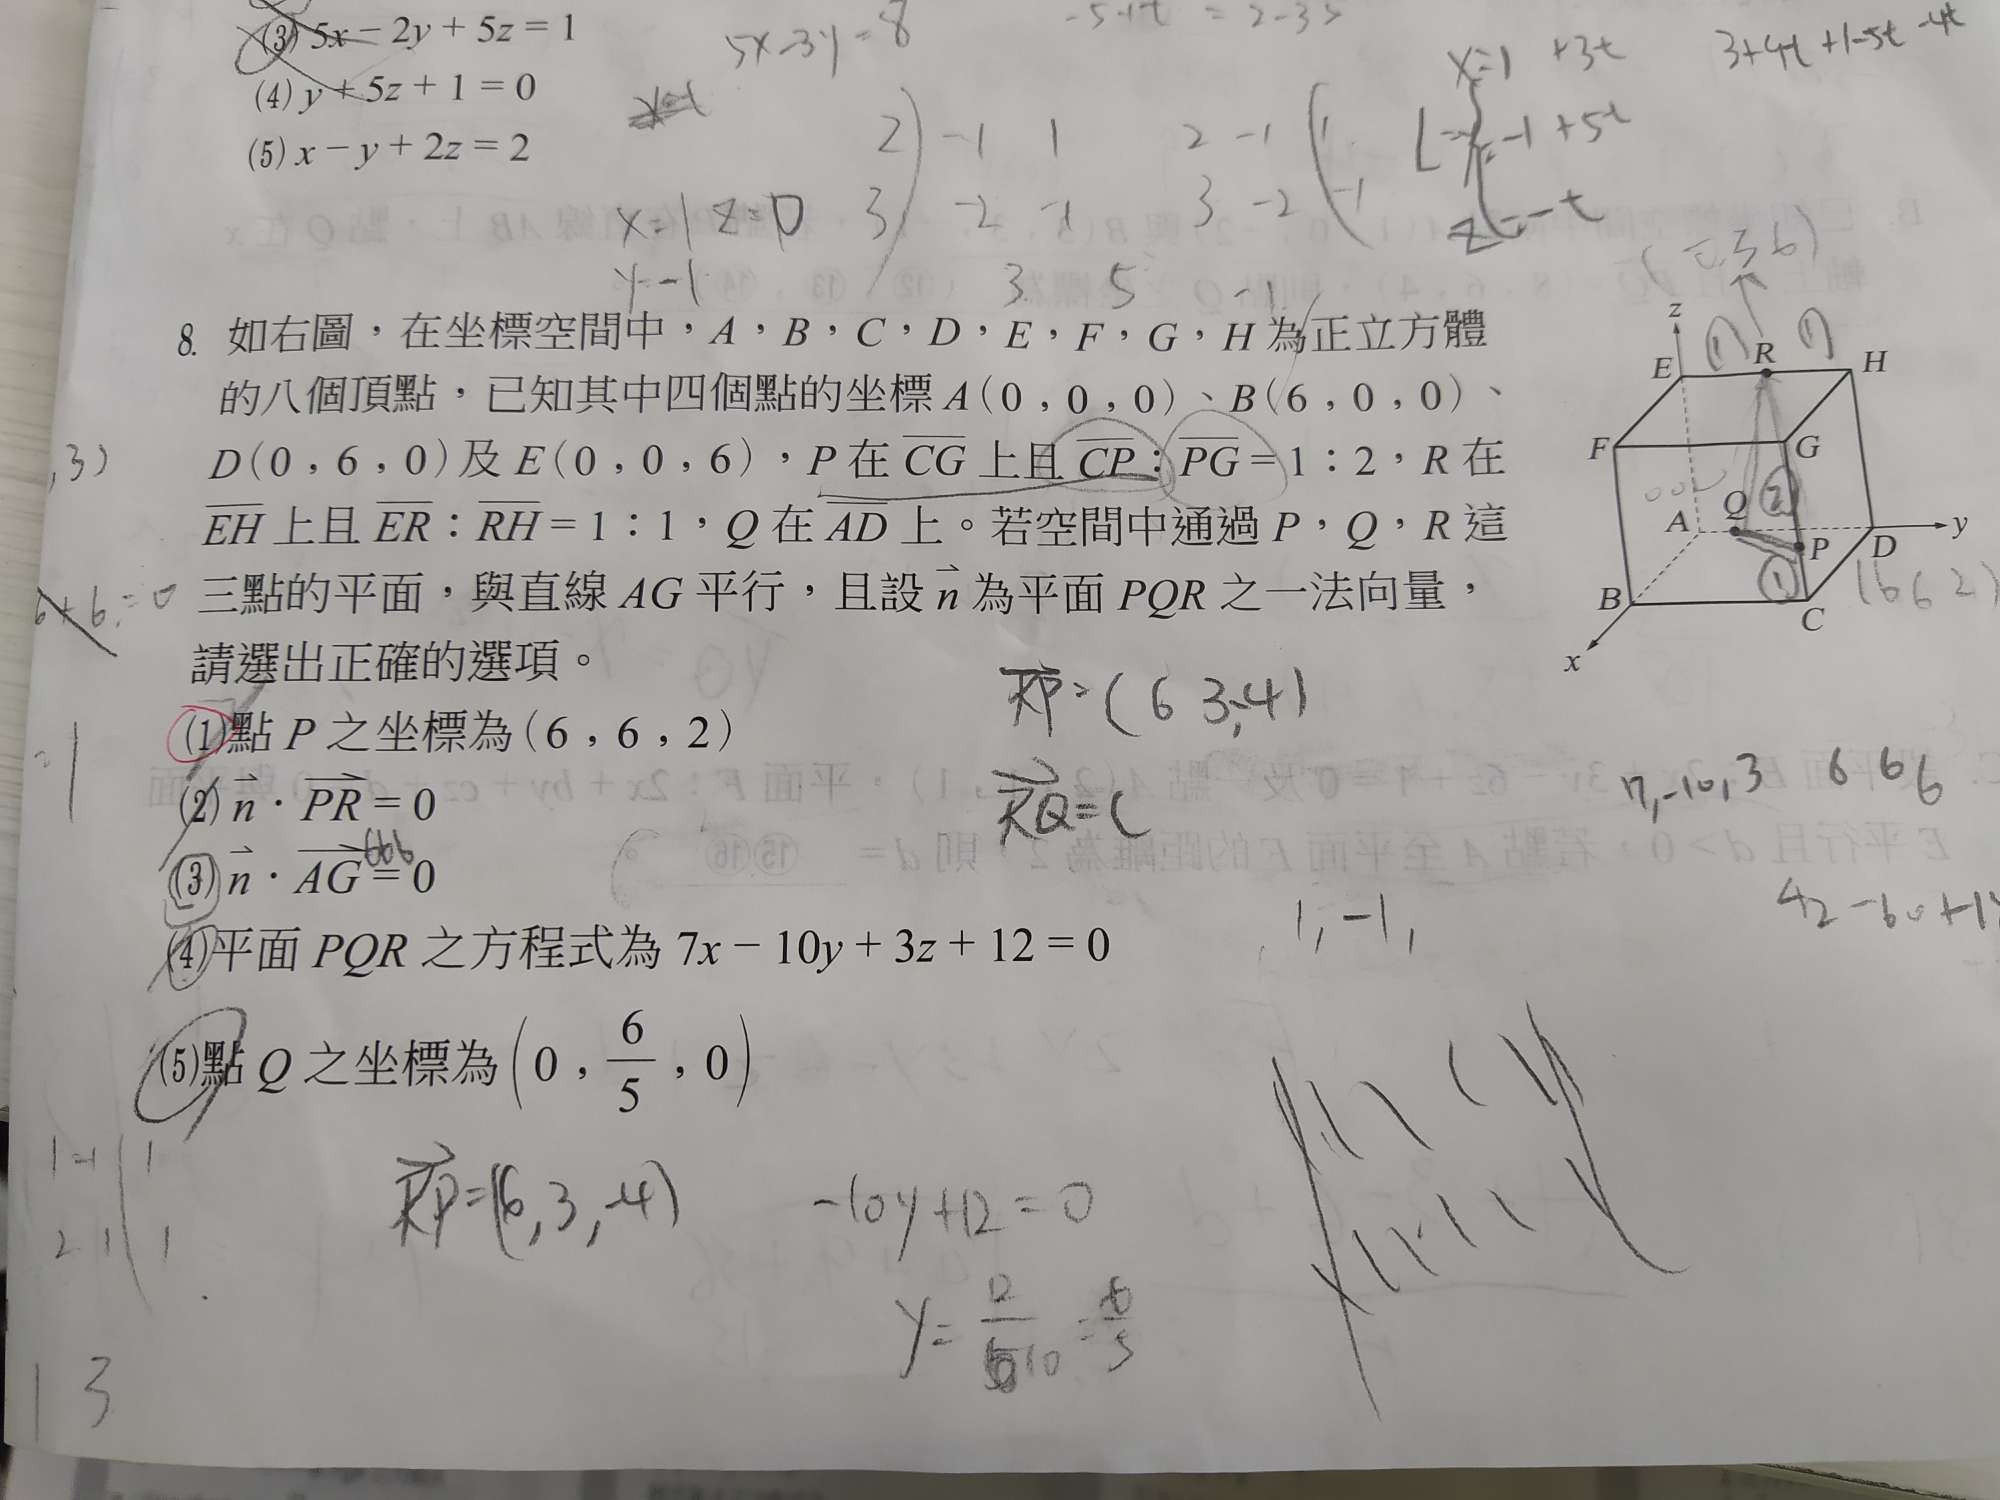 (3) 5x − 2y + 5z = 1
(4) y + 5z + 1 = 0
(5) x − y + 2z = 2
5x-3y=8
x=1 +3t
-1+5t
z=-t
2 -1 1 2 -1 1
3 -2 -1 3 -2 -1
3 5 -1
x=1 z=0
y=-1
8. 如右圖，在坐標空間中，A，B，C，D，E，F，G，H 為正立方體
的八個頂點，已知其中四個點的坐標 A(0，0，0)、B(6，0，0)、
D(0，6，0)及 E(0，0，6)，P 在 CG 上且 CP：PG = 1：2，R 在
EH 上且 ER：RH = 1：1，Q 在 AD 上。若空間中通過 P，Q，R 這
三點的平面，與直線 AG 平行，且設 n 為平面 PQR 之一法向量，
請選出正確的選項。
(1)點 P 之坐標為(6，6，2)
(2) n · PR = 0
(3) n · AG = 0
(4)平面 PQR 之方程式為 7x − 10y + 3z + 12 = 0
(5)點 Q 之坐標為 (0，6/5，0)
z
E R H
① ①
F G
②
A Q
P D y
①
B C
x
(6 6 2)
RP=(6 3,-4)
RQ=(
7,-10,3 6 6 6
1,-1,
RP=(6,3,-4)
-10y+12=0
y=12/10=6/5
1 -1 1
2 1 1
1 3